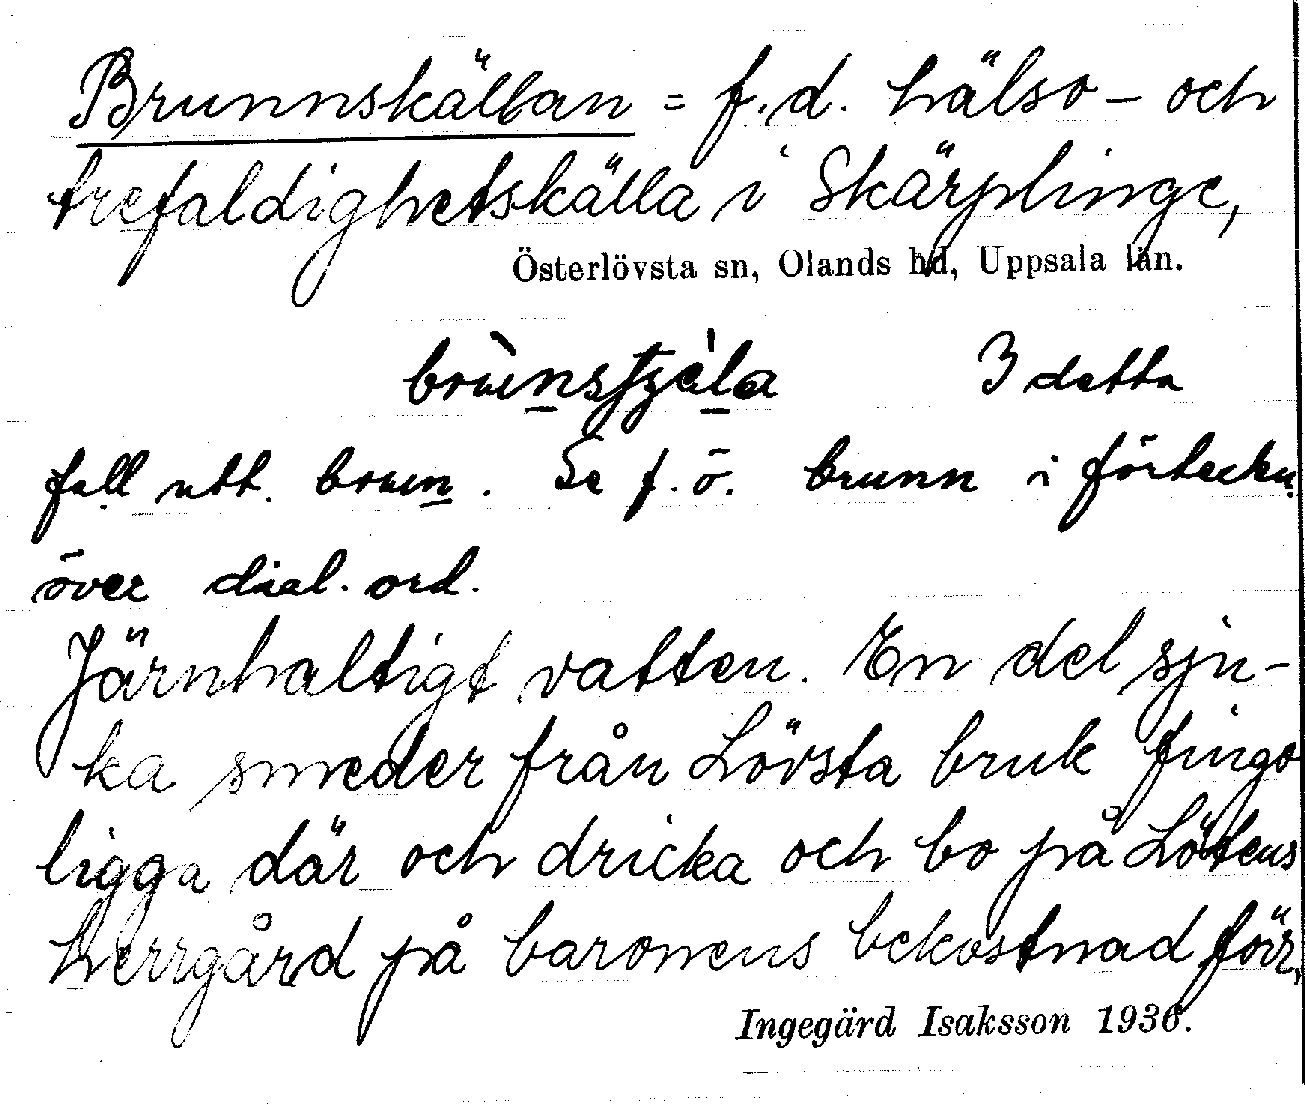 Brunnskällan = f.d. hälso- och
trefaldighetskälla i Skärplinge,
Österlövsta sn, Olands hd, Uppsala län.
I detta
fall utt. brun. Se f.ö. brunn i förteckn.
över dial. ord.
Järnhaltigt vatten. En del sju-
ka smeder från Lövsta bruk fingo
ligga där och dricka och bo på Lötens
herrgård på baronens bekostnad förr.
Ingegärd Isaksson 1936.